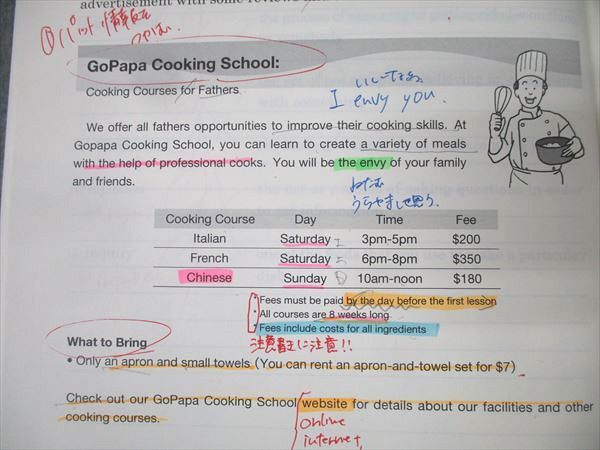 advertisement with some reviews
① パッと情報を
GoPapa Cooking School:
Cooking Courses for Fathers
いいなぁ。
I envy you.
We offer all fathers opportunities to improve their cooking skills. At
Gopapa Cooking School, you can learn to create a variety of meals
with the help of professional cooks. You will be the envy of your family
and friends.
ねたむ
うらやましく思う。
Cooking Course Day Time Fee
Italian Saturday 3pm-5pm $200
French Saturday 6pm-8pm $350
Chinese Sunday 10am-noon $180
• Fees must be paid by the day before the first lesson
• All courses are 8 weeks long
• Fees include costs for all ingredients
注意書きに注意!!
What to Bring
• Only an apron and small towels (You can rent an apron-and-towel set for $7)
Check out our GoPapa Cooking School website for details about our facilities and other
cooking courses.
online
internet